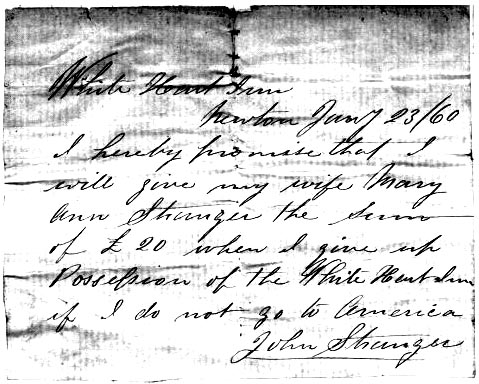 White Hart Inn
Newton Jany 23/60
I hereby promise that I
will give my wife Mary
Ann Stranger the sum
of £ 20 when I give up
Possession of the White Hart Inn
if I do not go to America
John Stranger